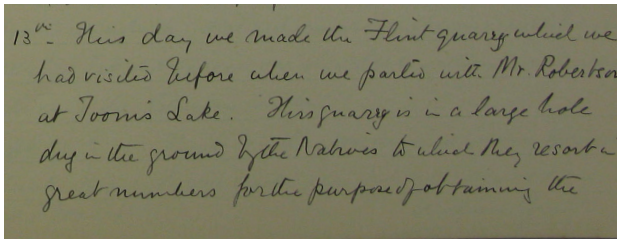 13th- This day we made the Flint quarry which we
had visited before when we parted with Mr. Robertson
at Toom's Lake. This quarry is in a large hole
dug in the ground by the Natives to which they resort in
great numbers for the purpose of obtaining the